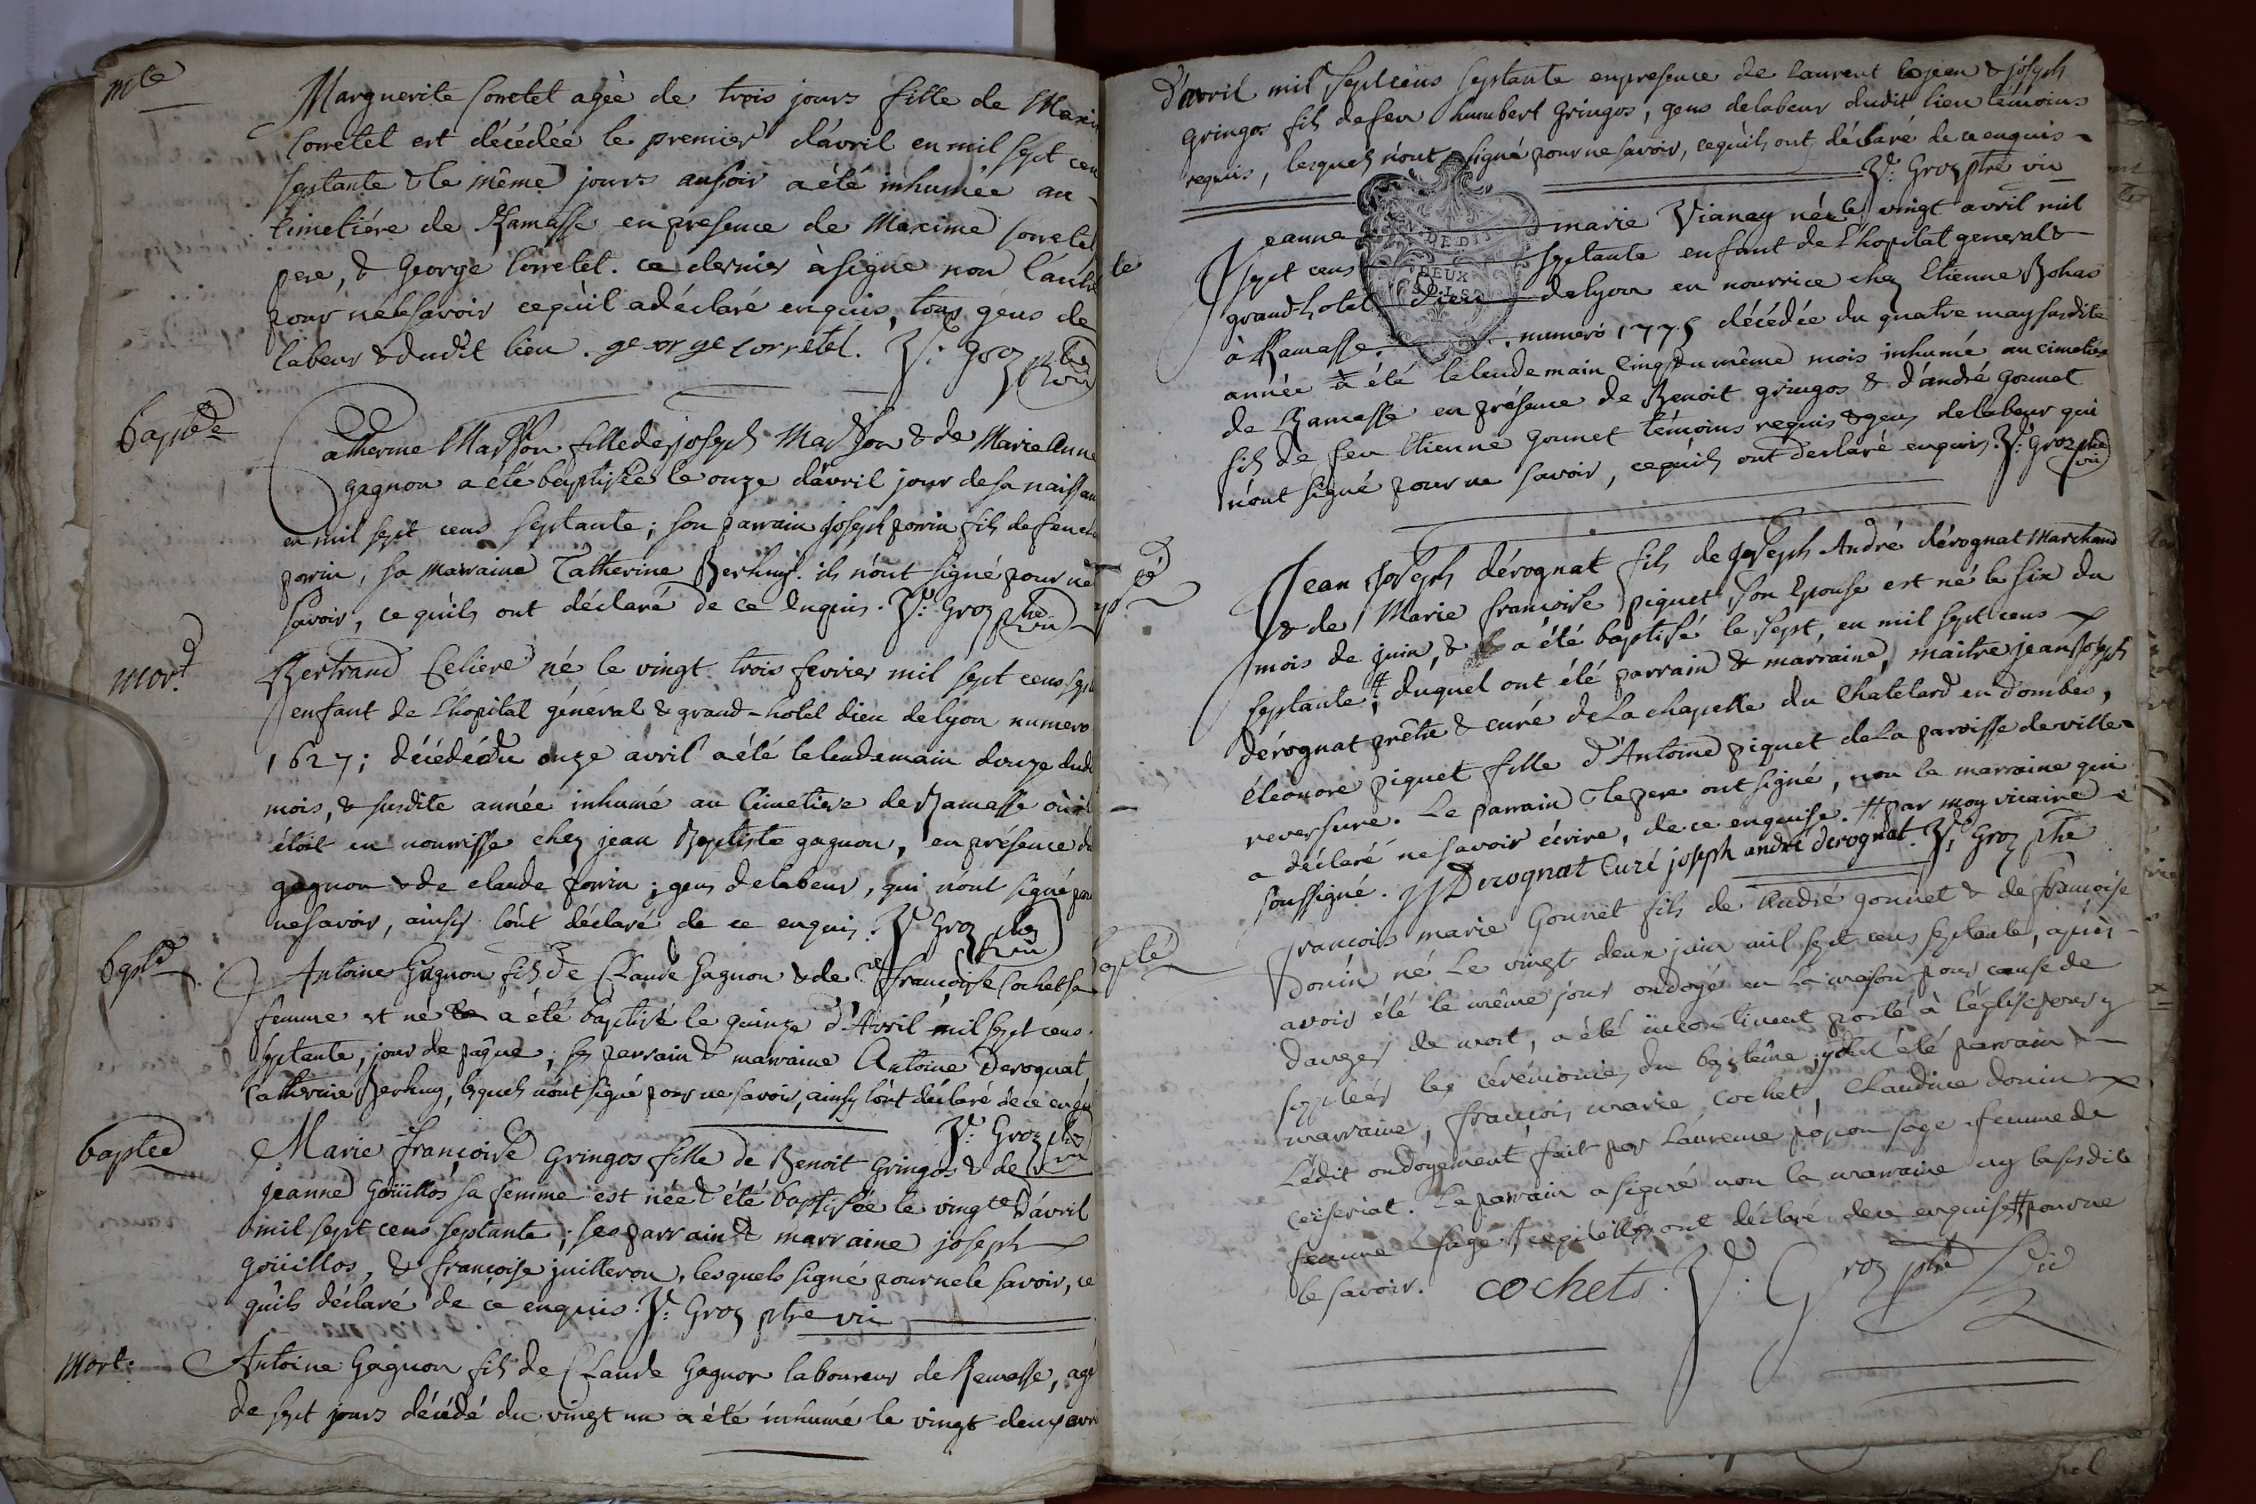 mte
Marguerite Corretel agée de trois jours fille de Maxi
Corretel est décédée le premier d'avril en mil sept cen
septante & le même jours au soir a été inhumée au
Cimetiére de Ramasse en presence de Maxime Corretel
pere, & George Corretel. ce dernier à signé non l'autre
pour ne le savoir ce qu'il a déclaré enquis, tous gens de
labeur & dudit lieu. george corretel. V: Groz ptre vic
bapt
Catherine Masson fille de joseph Masson & de Marie Anne
gagnon a été baptisée le onze d'avril jour de sa naissan
en mil sept cens septante; son parrain joseph porrin fils de feu
porrin, sa marraine Catherine Berhuy. ils n'ont signé pour ne
savoir, ce qu'ils ont déclaré de ce enquis. V: Groz ptre vic
mort
Bertrand Celiere né le vingt trois fevrier mil sept cens sept
enfant de l'hopital général & grand-hotel dieu de lyon numero
1627; décédé du onze avril a été le lendemain douze dudi
mois, & susdite année inhumé au Cimetiere de Ramasse où il
étoit en nourrisse chez jean Baptiste gagnon, en présence du
gagnon & de claude porrin; gens de labeur, qui n'ont signé pour
ne savoir, ainsy l'ont déclaré de ce enquis. V: Groz ptre vic
bapt
Antoine Gagnon fils de Claude Gagnon & de françoise Cochet sa
femme est né & a été baptisé le quinze d'Avril mil sept cens
septante, jour de pâque; ses parrain & marraine Antoine Derognat
Catherine Berhuy, lesquels n'ont signé pour ne savoir, ainsy l'ont déclaré de ce enqui
V: Groz ptre vic
baptée
Marie françoise Gringos fille de Benoit Gringos & de
jeanne Goüillos sa femme est née & été baptisée le vingte d'avril
mil sept cens septante; ses parrain & marraine joseph
goüillos, & françoise juilleron, lesquels signé pour ne le savoir, ce
qu'ils déclaré de ce enquis. V: Groz ptre vic
Mort:
Antoine Gagnon fils de Claude Gagnon laboureur de Ramasse, agé
de sept jours décédé du vingt un a été inhumé le vingt deux avri
d'avril mil sept cens septante en presence de Laurent Cojean & joseph
Gringos fils de feu humbert Gringos, gens de labeur dudit lieu témoins
requis, lesquels n'ont signé pour ne savoir, ce qu'ils ont déclaré de ce enquis
V: Groz ptre vic
te
Jeanne marie Vianay née le vingt avril mil
sept cens septante enfant de l'hopital general &
grand-hotel dieu de lyon en nourrice chez Etienne Bohas
à Ramasse, numero 1775 décédée du quatre may susdite
année à été le lendemain cinq du même mois inhumé au cimetiére
de Ramasse en présence de Benoit gringos & d'andré Gonnet
fils de feu Etienne Gonnet témoins requis & gens de labeur qui
n'ont signé pour ne savoir, ce qu'ils ont déclaré enquis. V: Groz ptre vic
DEUX
Jean Joseph dérognat fils de Joseph André dérognat Marchand
& de Marie françoise piquet son Epouse est né le six du
mois de juin, & a été baptisé le sept, en mil sept cens
septante; # duquel ont été parrain & marraine, maitre jean joseph
dérognat prêtre & curé de La chapelle du Chatelard en dombes,
éléonore piquet fille d'Antoine piquet de La paroisse de ville-
reversure. Le parrain & le pere ont signé, non la marraine qui
a déclaré ne savoir écrire, de ce enquise. # par moy vicaire
soussigné. JJ Derognat Curé joseph andré derognat. V: Groz ptre
bapté
françois marie Gonnet fils de André gonnet & de françoise
Donin né Le vingt deux juin mil sept cens septante, après
avoir été le même jour ondoyé en La maison pour cause de
danger de mort, a été incontinent porté à l'église pour y
suppléer les cérémonies du baptême; y ont été parrain &
marraine, françois marie Cochet, Claudine donin
Ledit ondoyement fait par Laurence popon sage-femme de
Ceyseriat. Le parrain a signé non la marraine ny la susdite
femme sage, ont déclaré de ce enquise # pour ne
le savoir. cochet. V: Groz ptre Vic